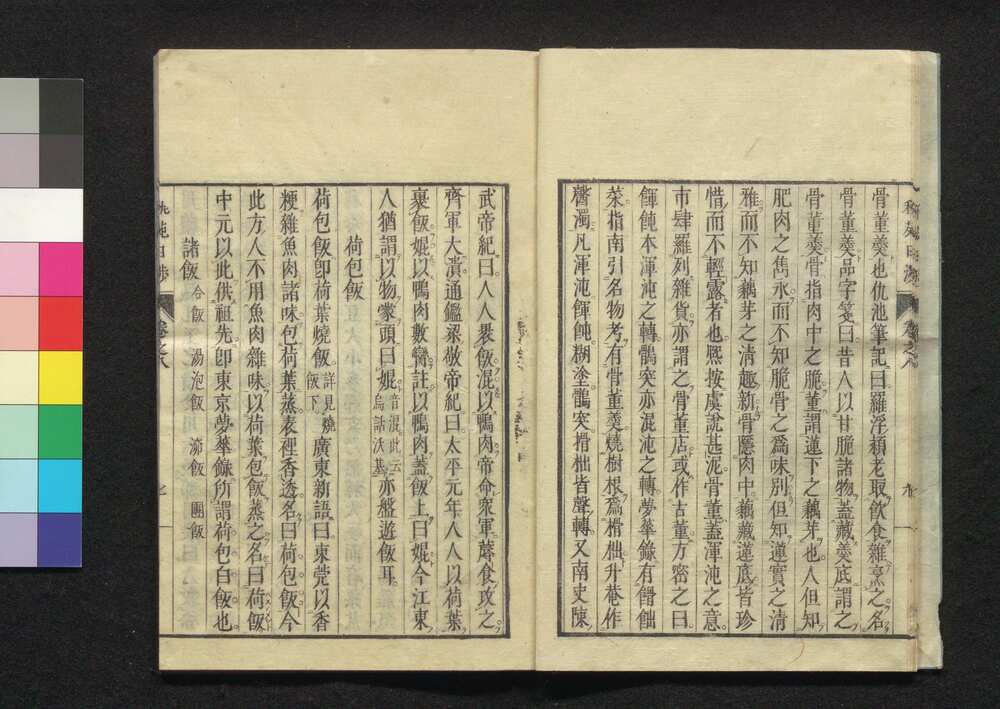 骨董羹也仇池筆記曰羅浮頴老取飲食雜烹之名
骨董羹品字箋曰昔人以甘脆諸物蓋藏羹底謂之
骨董羹骨指肉中之脆董謂蓮下之藕芽也人但知
肥肉之雋永而不知脆骨之爲味別但知蓮實之清
雅而不知藕芽之清趣新骨隱肉中藕藏蓮底皆珍
惜而不輕露者也熈按虞說甚泥骨董蓋渾沌之意
市肆羅列雜貨亦謂之骨董店或作古董方密之曰
餛飩本渾沌之轉鶻突亦混沌之轉夢華錄有餶飿
菜指南引名物考有骨董羹燒樹根爲榾柮升菴作
渾沌餛飩糊塗鶻突榾柮皆聲轉又南史陳
武帝紀曰人人裹飯混以鴨肉帝命衆軍蓐食攻之
齊軍大潰通鑑梁敬帝紀曰太平元年人人以荷葉
裹飯婫以鴨肉數臠註以鴨肉蓋飯上曰婫今江東
人猶謂以物蒙頭曰婫音混此云亦盤遊飯耳
荷包飯
荷包飯卽荷葉燒飯詳見燒飯下廣東新語曰東莞以香
粳雜魚肉諸味包荷葉蒸表裡香透名曰荷包飯今
此方人不用魚肉雜味以荷葉包飯蒸之名曰荷飯
中元以此供祖先卽東京夢華錄所謂荷包白飯也
諸飯 合飯 湯泡飯 飯 團飯
卷之八